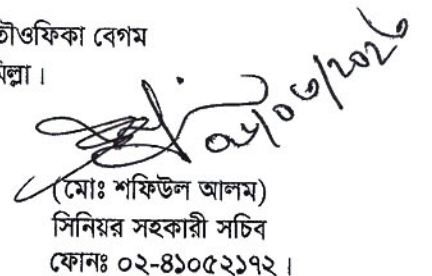 তৌওফিকা বেগম
মিল্লা।
(মোঃ শফিউল আলম)
সিনিয়র সহকারী সচিব
ফোনঃ ০২-৪১০৫২১৭২।